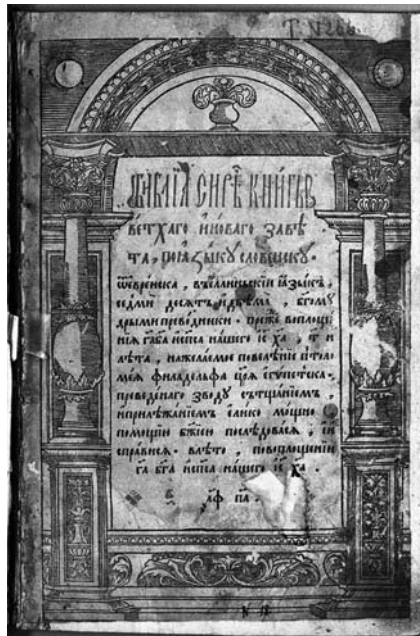 Т. N 266.
БИБЛІА СИРѢЧЬ КНИГЫ
ветхаго и новаго завѣ
та, по ꙗзыку словенску.
ѿ еврейска, въ еллиньскїи ꙗзыкъ,
седмиⷨ десятъ и двѣма, бг҃ому
дрыми преводники. преже воплоще
нїа гаⷭ҇ ба҃ и сп҃са нашего і҃с ха҃, т҃ и
лѣта, на желаемое повелѣнїе птоло
меа филаделъфа цр҃ѧ египетска.
преведенаго зводу съ тщанїемъ,
и прилѣжанїемъ елико мощно
помощїю бж҃їею послѣдовася, и и
справися. в лѣто, по воплощенїи
га҃ ба҃ и сп҃са нашего і҃с ха҃.
҂аф па.